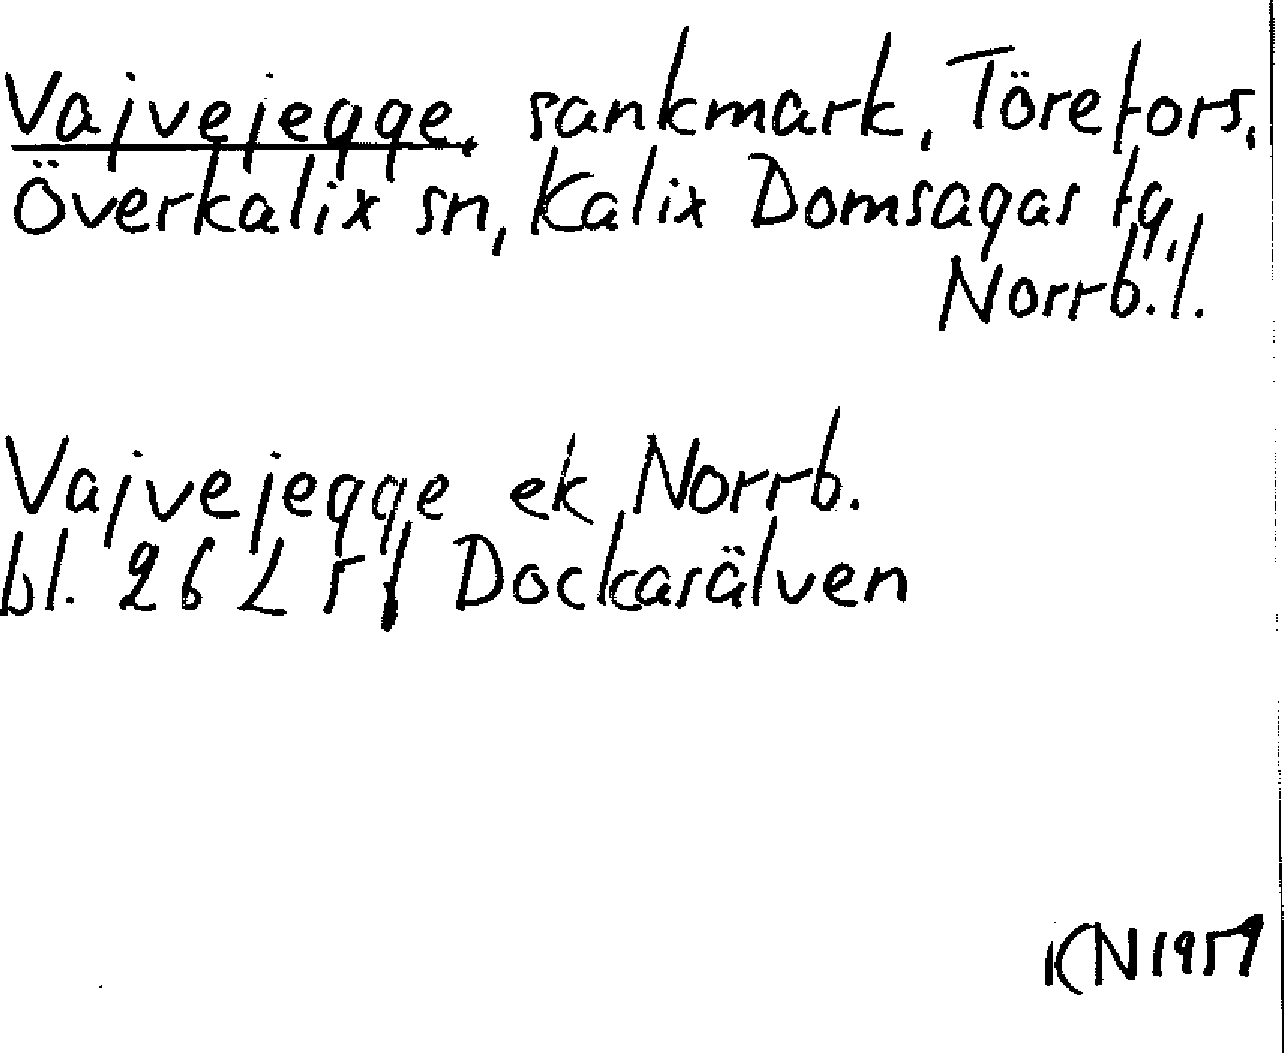 Vajvejegge, sankmark, Törefors,
Överkalix sn, Kalix Domsagas tg,
Norrb.l.
Vajvejegge ek Norrb.
bl. 26 L Dockasälven
KN 1957